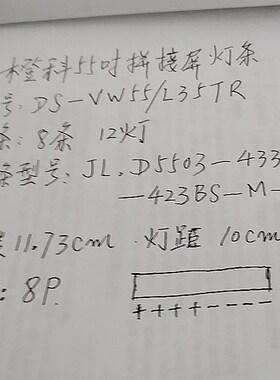 橙科55吋拼接屏灯条
号: DS-VW55/L35TR
条: 8条 12灯
条型号: JL.D5503-433
-423BS-M-
11.73cm 灯距 10cm
: 8P.
++++----